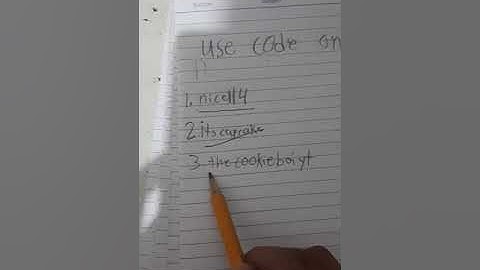 use code on
1. nicell4
2. itscupcake
3. thecookieboiyt